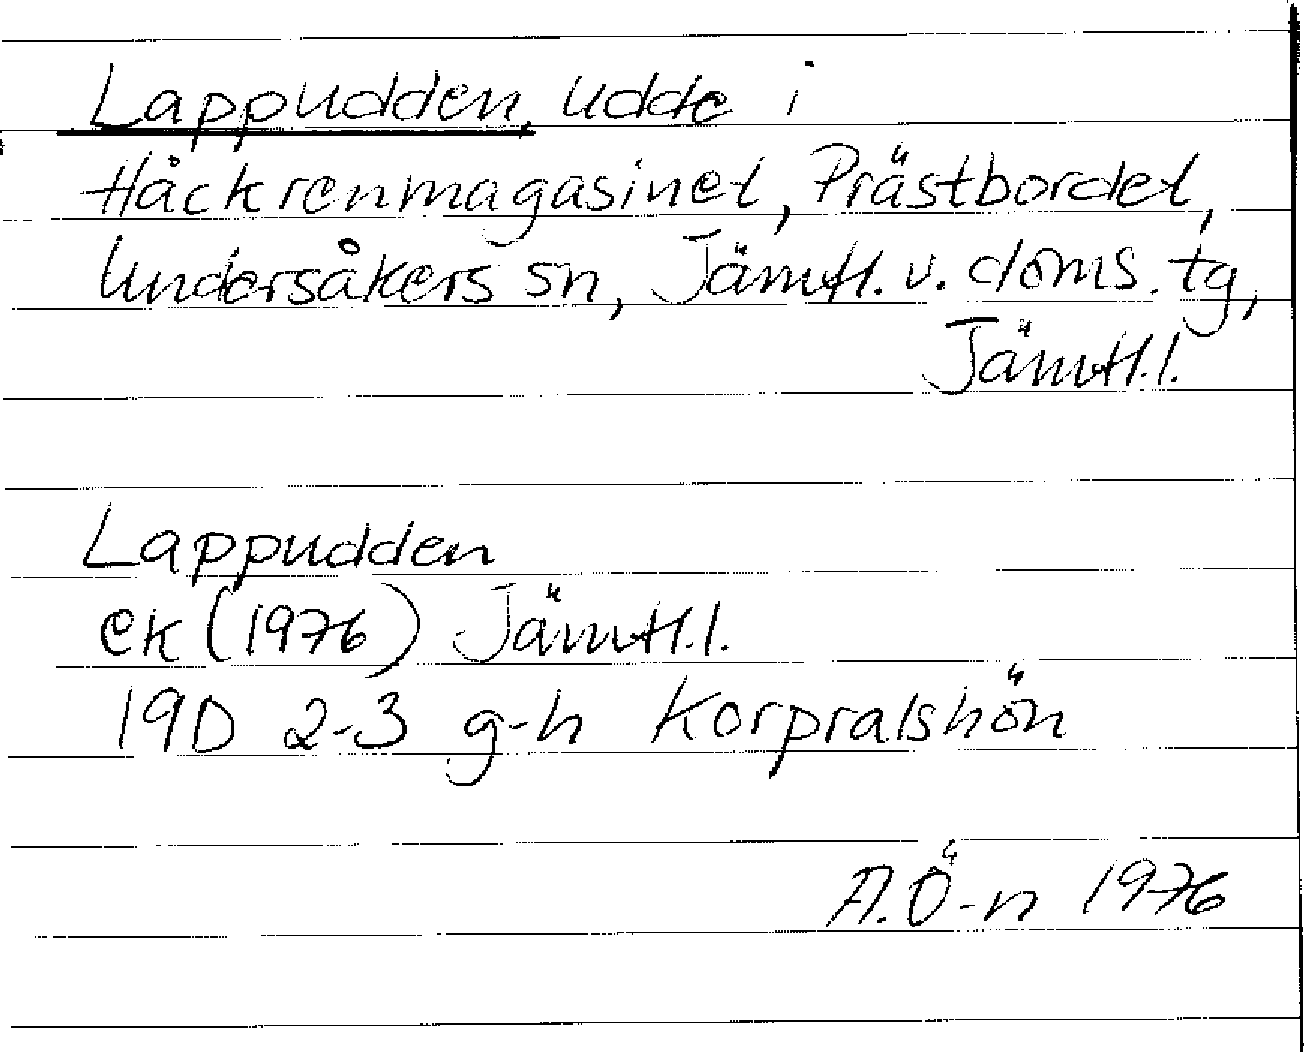 Lappudden, udde i
Håckrenmagasinet, Prästbordet,
Undersåkers sn, Jämtl. v. doms. tg,
Jämtl.l.
Lappudden
ek (1976) Jämtl.l.
19D 2-3 g-h Korpralshön
A.Ö-n 1976